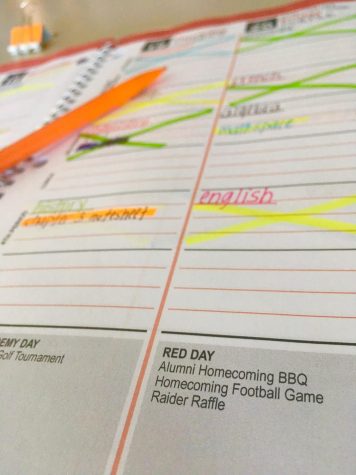 algebra
math space
history
chapter 3 notesheet
english
EMY DAY
Golf Tournament
RED DAY
Alumni Homecoming BBQ
Homecoming Football Game
Raider Raffle